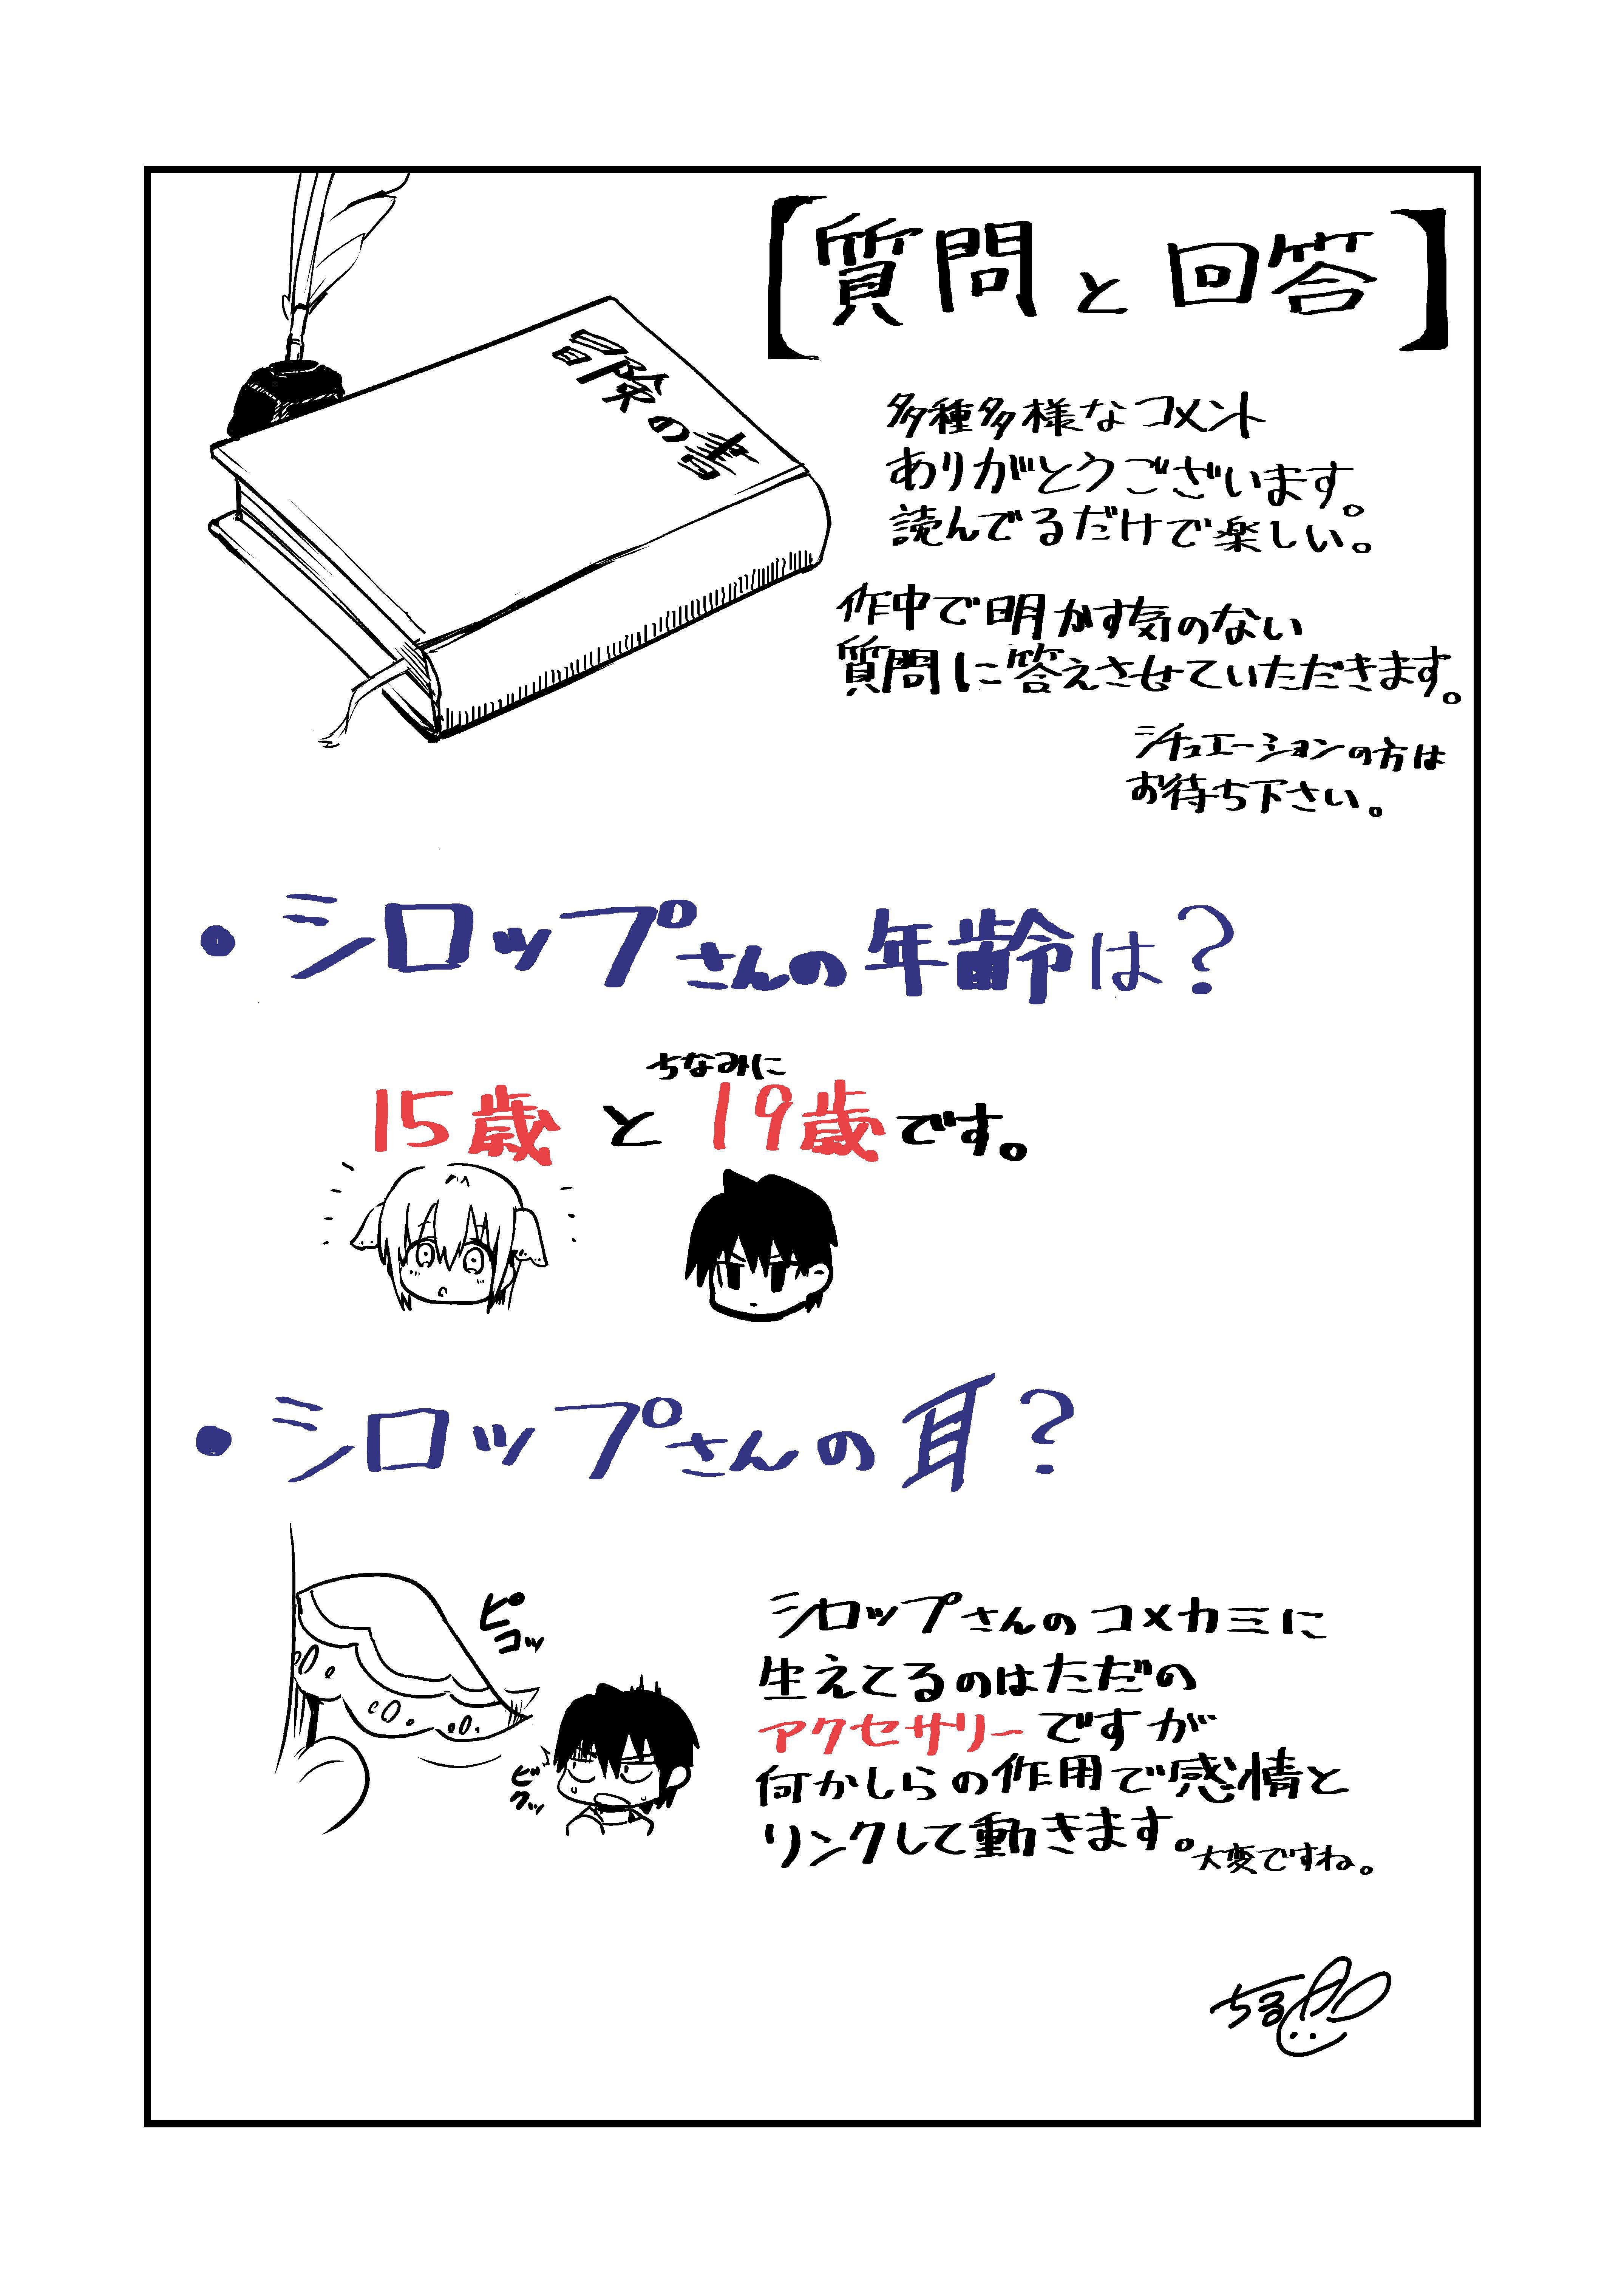 【質問と回答】
冒険の書
多種多様なコメント
ありがとうございます。
読んでるだけで楽しい。
作中で明かす気のない
質問に答えさせていただきます。
シチュエーションの方は
お待ち下さい。
・シロップさんの年齢は?
ちなみに
15歳と19歳です。
・シロップさんの耳?
ピコッ
ビクッ
シロップさんのコメカミに
生えてるのはただの
アクセサリーですが
何かしらの作用で感情と
リンクして動きます。
大変ですね。
ちる